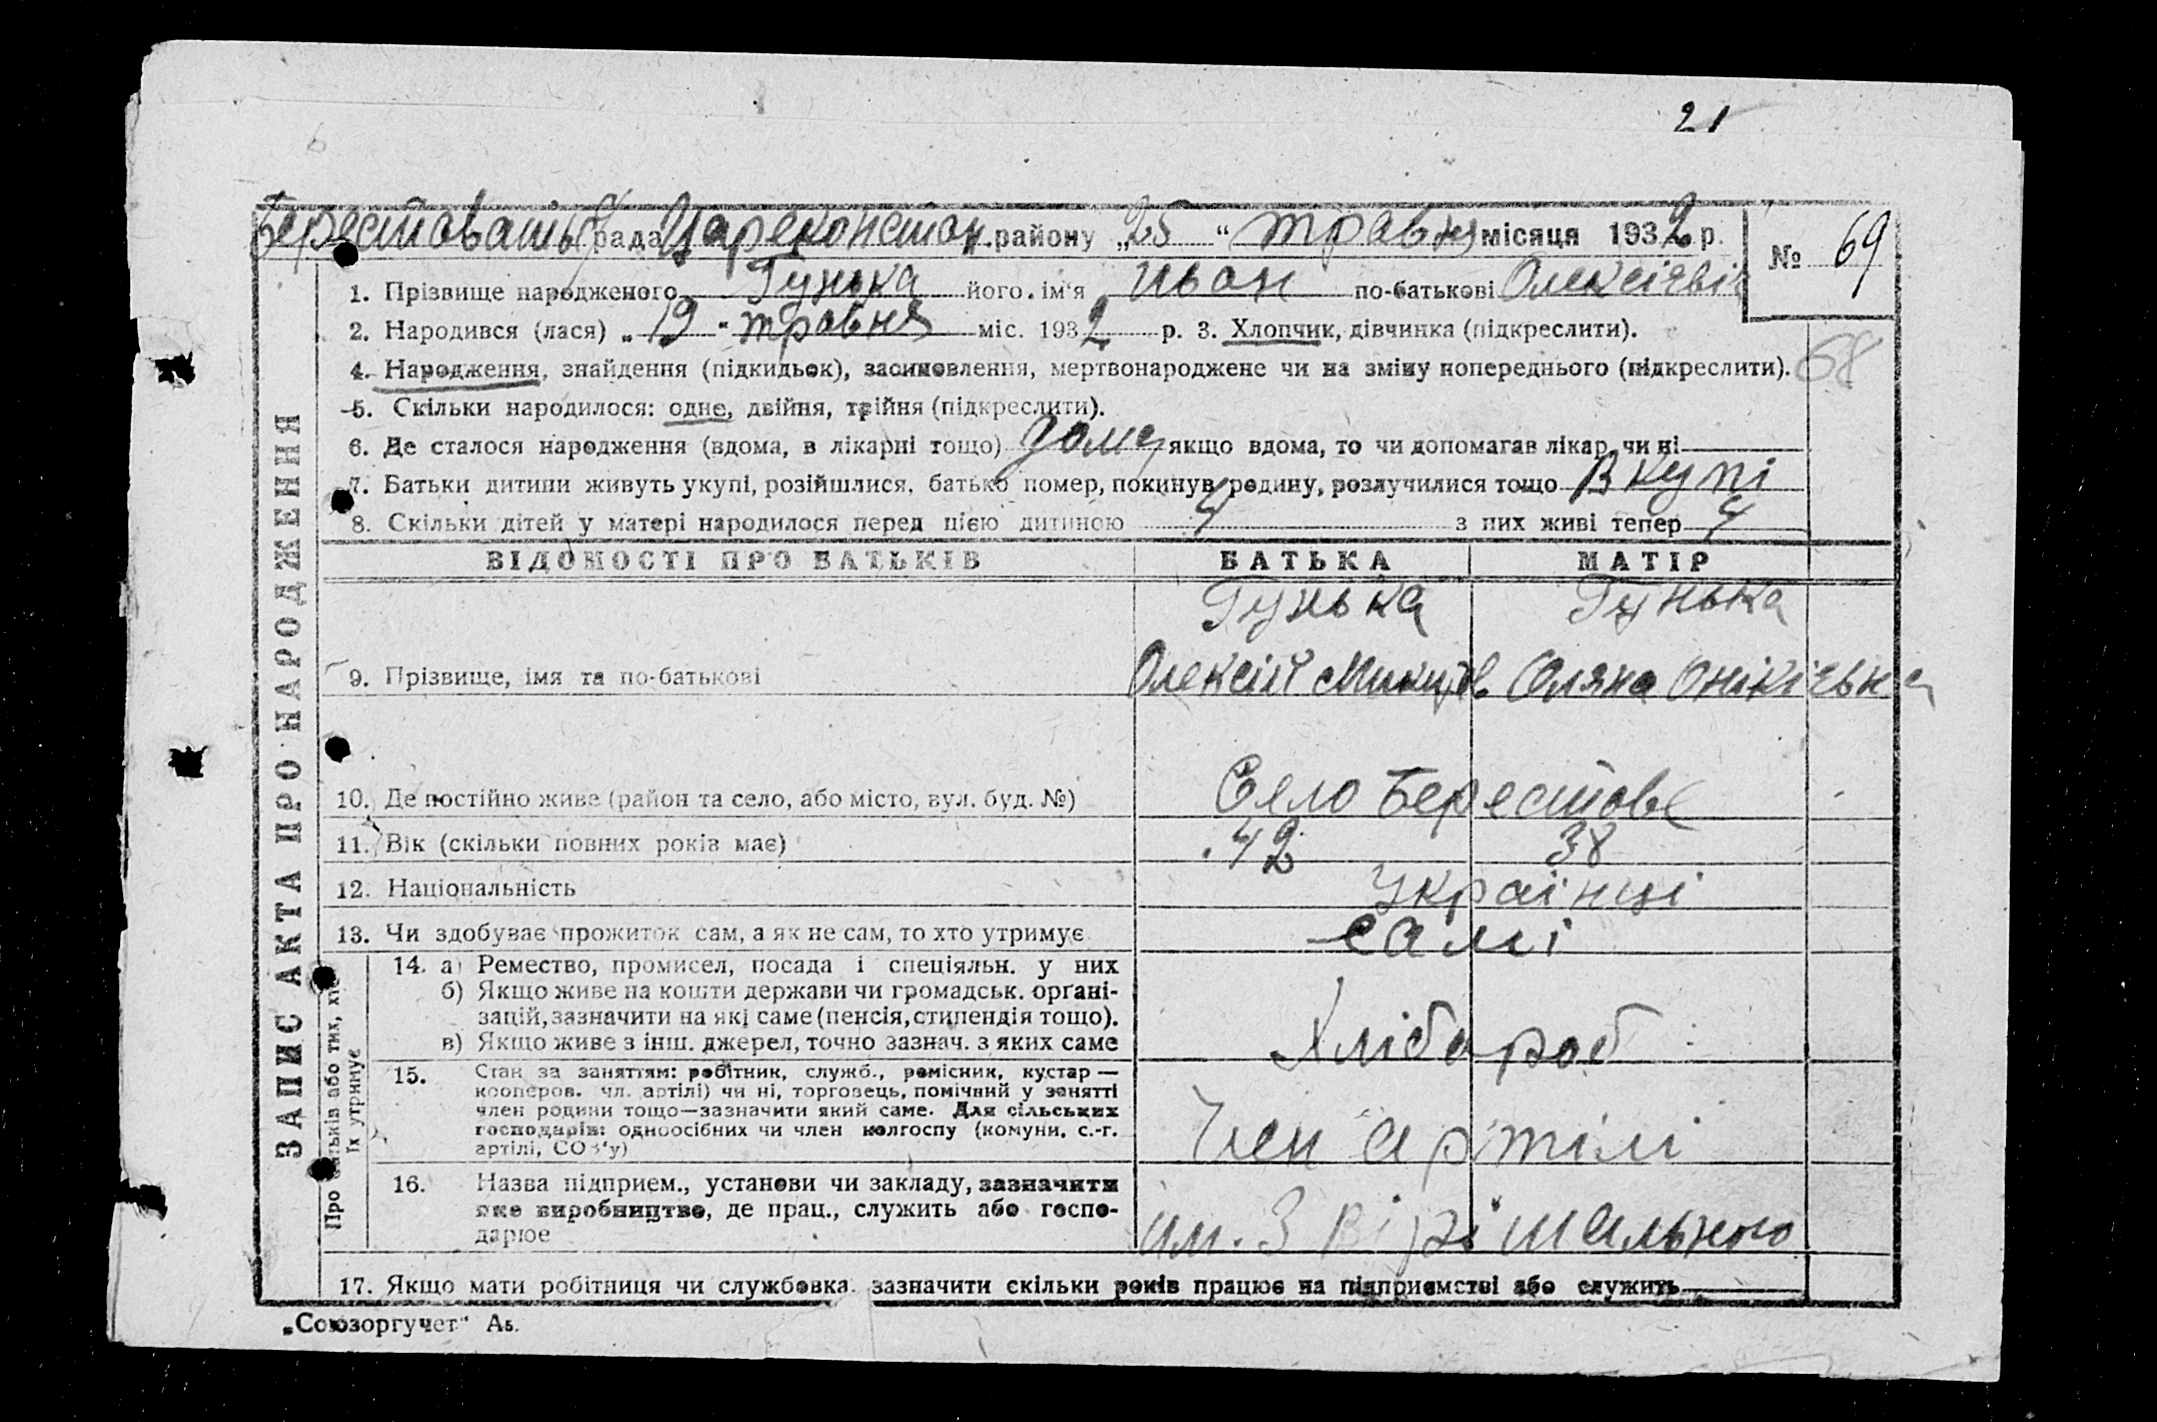 21
Берестовать с/рада Цареконстан. району „25“ травня місяця 1932 р. № 69
1. Прізвище народженого Гунька його ім'я Иван по-батькові Олексієвіч
2. Народився (лася) „19“ травня міс. 1932 р. 3. Хлопчик, дівчинка (підкреслити).
4. Народження, знайдення (підкидьок), засиновлення, мертвонароджене чи на зміну попереднього (підкреслити). 68
5. Скільки народилося: одне, двійня, трійня (підкреслити).
6. Де сталося народження (вдома, в лікарні тощо) дома якщо вдома, то чи допомагав лікар чи ні
7. Батьки дитини живуть укупі, розійшлися, батько помер, покинув родину, розлучилися тощо Вкупі
8. Скільки дітей у матері народилося перед цією дитиною 4 з них живі тепер 4
ВІДОМОСТІ ПРО БАТЬКІВ БАТЬКА МАТІР
Гунька Гунька
9. Прізвище, імя та по-батькові Олексій Оляна Онікієвна
10. Де постійно живе (район та село, або місто, вул. буд. №) Село Берестове
11. Вік (скільки повних років має) 42 38
12. Національність Українці
13. Чи здобуває прожиток сам, а як не сам, то хто утримує самі
14. а) Ремество, промисел, посада і спеціяльн. у них
б) Якщо живе на кошти держави чи громадськ. органі-
зацій, зазначити на які саме (пенсія, стипендія тощо).
в) Якщо живе з інш. джерел, точно зазнач. з яких саме Хлібороб
15. Стан за заняттям: робітник, служб., ремісник, кустар —
кооперов. чл. артілі) чи ні, торговець, помічний у занятті
член родини тощо—зазначити який саме. Для сільських
господарів: одноосібних чи член колгоспу (комуни, с.-г.
артілі, СОЗ'у) Член артілі
16. Назва підприєм., установи чи закладу, зазначити
яке виробництво, де прац., служить або госпо-
дарює им. 3 вірішального
17. Якщо мати робітниця чи службовка зазначити скільки років працює на підприємстві або служить
ЗАПИС АКТА ПРО НАРОДЖЕННЯ
Про батьків або тих, хто
їх утримує
„Союзоргучет“ Аб.